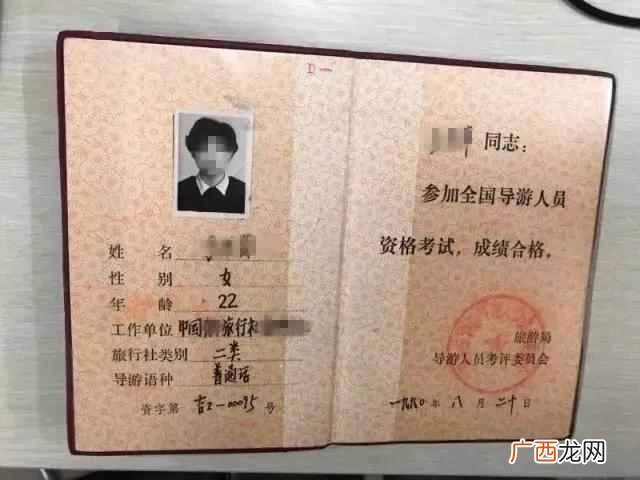 D一
姓 名
性 别 女
年 龄 22
工作单位 中国 旅行社
旅行社类别 二类
导游语种 普通话
资字第 吉2-00095 号
同志：
参加全国导游人员
资格考试，成绩合格。
旅游局
导游人员考评委员会
一九九〇年 八 月 二十 日
广西龙网